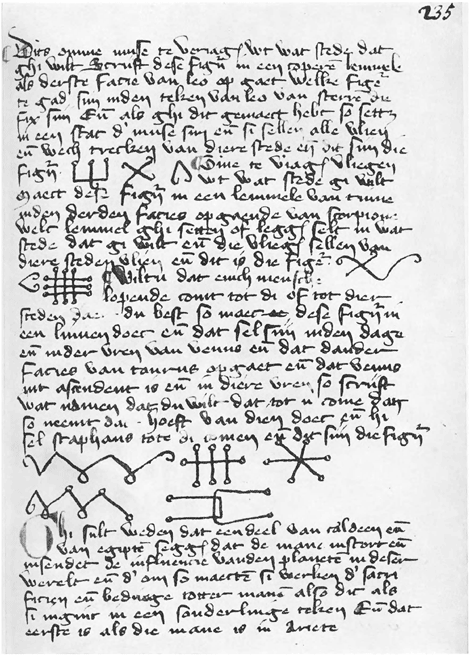 235
Dits omme muse te veriag/ wt wat stede dat
ghi wilt Scruft dese figur in een coperē lemmele
als derste facie van leo op gaet welke figur
te gad sijn inden teken van leo van sterre die
fix sijn Eñ als ghi dit gemaect hebt so settz
in een stat d' muse sijn eñ si sellen alle vlien
eñ wech trecken van diere stede eñ dit sijn die
figuř Ome te v'iag/ vliegen
wt wat stede gi wilt
Maect dese figuř in een lemmele van tinne
inden derden facies opgaende van scorpion
welc lemmel ghi setten of legg/ selt in wat
stede dat gi wilt eñ die vlieg/ sellen van
diere steden vlien eñ dit is die figur
Wiltu dat enich mensch
lopende comt tot di of tot dier
steden du best so maec dese figuř in
een linnen doec eñ dat sel sijn inden dage
eñ inder vren van venus eñ dat dander
facies van taurus op gaet eñ dat venus
int ascendent is eñ in diere vren so scruft
wat namen dat du wilt dat tot u come dan
so neemt hoeft van dien doec eñ hi
sel staphans tote di comen eñ dat sijn die figuř
Ghi sult weden dat een deel van caldeen eñ
van egiptē segg/ dat de mane in stort eñ
in sendet de influencie vanden planetē in deser
werelt eñ d' om so maectē si werken d' sacri
ficien eñ bedinge totter manē also dit als
si ingint in een sonderlinge teken Eñ dat
eerste is als die mane is in Ariete